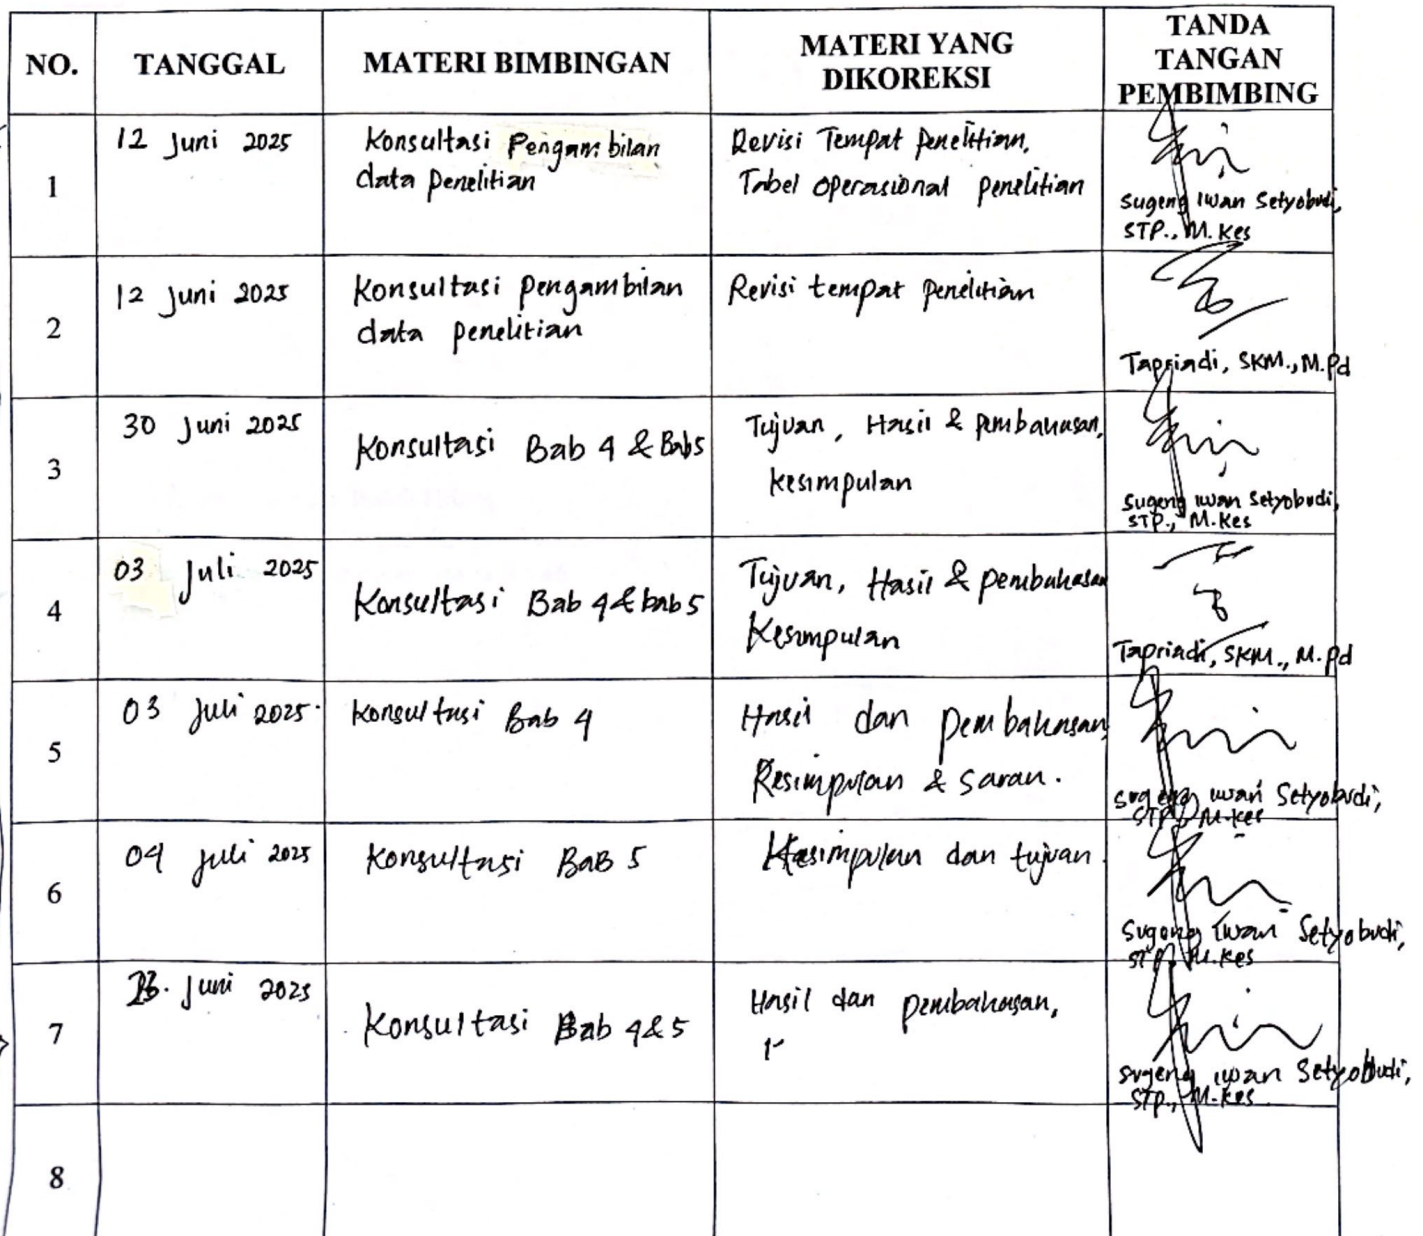 NO.
TANGGAL
MATERI BIMBINGAN
MATERI YANG
DIKOREKSI
TANDA
TANGAN
PEMBIMBING
1
12 Juni 2025
Konsultasi Pengambilan
data penelitian
Revisi Tempat penelitian,
Tabel operasional penelitian
Sugeng Iwan Setyobudi,
STP., M.Kes
2
12 Juni 2025
Konsultasi pengambilan
data penelitian
Revisi tempat penelitian
Tapriadi, SKM., M.Pd
3
30 Juni 2025
Konsultasi Bab 4 & Bab5
Tujuan, Hasil & pembahasan,
kesimpulan
Sugeng Iwan Setyobudi,
STP., M.Kes
4
03 Juli 2025
Konsultasi Bab 4 & bab 5
Tujuan, Hasil & pembahasan
Kesimpulan
Tapriadi, SKM., M.Pd
5
03 Juli 2025.
Konsultasi Bab 4
Hasil dan pembahasan,
Kesimpulan & saran.
Sugeng Iwan Setyobudi,
STP., M.Kes
6
04 Juli 2025
Konsultasi BaB 5
Kesimpulan dan tujuan.
Sugeng Iwan Setyobudi,
STP., M.Kes
7
Juni 2025
Konsultasi Bab 4&5
Hasil dan pembahasan,
Sugeng Iwan Setyobudi,
STP., M.Kes.
8